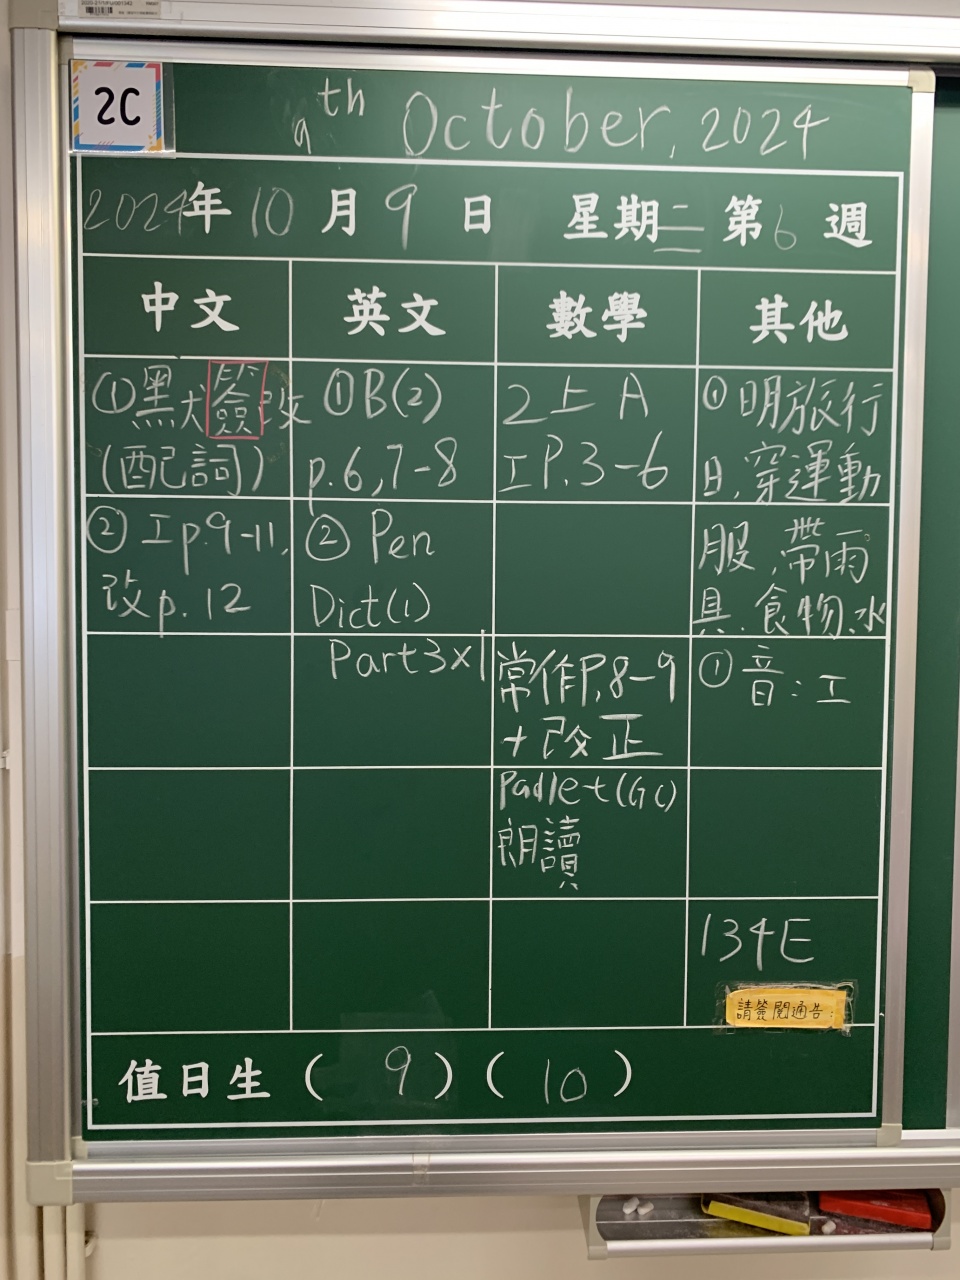 2C
9th October, 2024
2024年10月9日 星期三 第6週
中文 英文 數學 其他
①黑犬簽改
(配詞)
②工p.9-11,
改p.12
①B(2)
p.6,7-8
②Pen
Dict(1)
Part3×1
2上A
工P.3-6
常作P.8-9
+改正
Padlet(GC)
朗讀
①明旅行
日,穿運動
服,帶雨
具.食物.水
①音:工
134E
請簽閱通告:
值日生(9)(10)